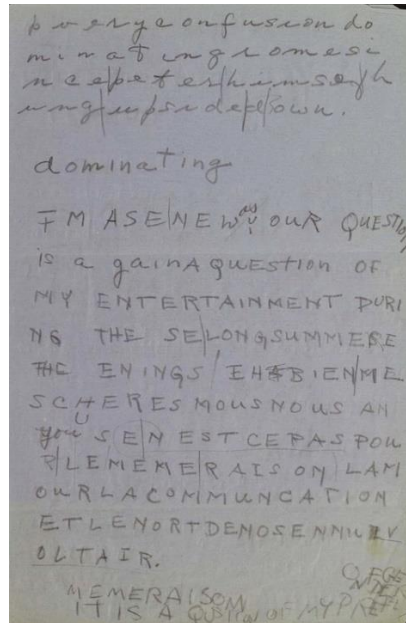 p v e r y c o n f u s i o n d o
m i n a t i n g r o m e s i
n c e p e t e r h i m s e l f h
u n g u p s i d e d o w n .
dominating
I M A S E N E W OUR QUESTION
is a gainA QUESTION OF
MY ENTERTAINMENT DURI
NG THE SELONGSUMMERE
THE ENINGS EHBIENME
SCHERESMOUSNOUS AN
you SENESTCEPASPOU
RLEMEMERAISONLAM
OURLACOMMUNCATION
ETLENORTDENOSENNIU
VOLTAIR.
MEMERAISOM
IT IS A QUSTION OF MY PREF